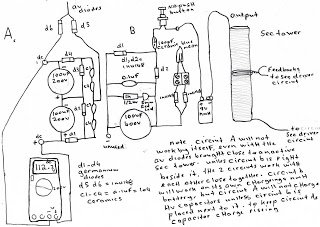 A.
av
diodes
d6
d5
B
push
button
output
Sec tower
d1
d4
100uF
200v
100uF
200v
dc
dc
112.7
d1-d4
germanium
diodes
d5 d6 = in4148
ceramics
d1
d1, d2 =
in4148
0.1uF
100uF
400v
unused
blue
neon
feedback
to sec driver
circuit
to...
sec driver
circuit
note circuit A will not
work by itself, even with the
av diodes brought close to an active
Sec tower. unless circuit B is right
beside it. The 2 circuit work with
each other close together. Circuit b
will work on its own charging unit
battery. but circuit A will not charge
AV capacitors unless circuit b is
placed next to it. to keep circuit A
capacitor charge rising